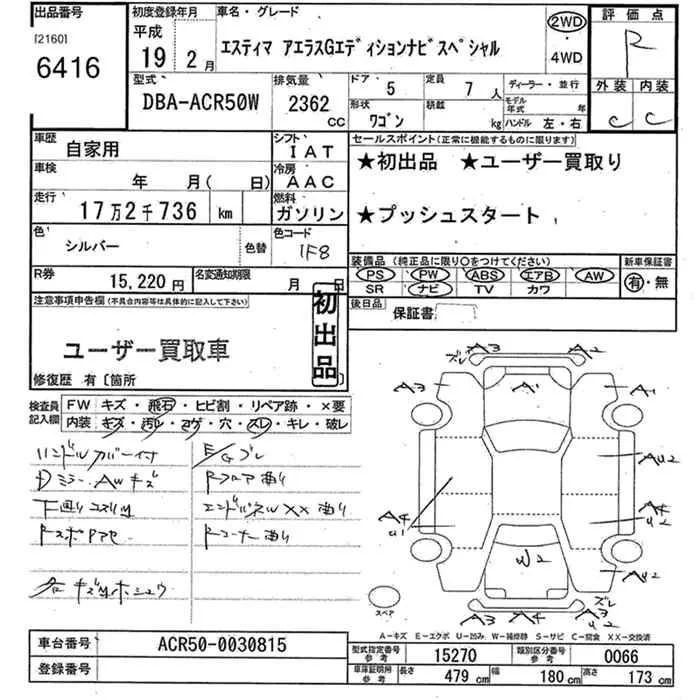 出品番号
[2160]
6416
初度登録年月
平成
19年 2月
車名・グレード
エスティマ アエラスGエディションナビスペシャル
2WD
・
4WD
評価点
R
外装 内装
C C
型式
DBA-ACR50W
排気量
2362
CC
ドア 5
定員 7人
形状
ワゴン
積載
kg
ディーラー・並行
モデル年式 年
ハンドル 左・右
車歴
自家用
シフト
IAT
車検
年 月( 日)
冷房
AAC
走行
17万2千736 km
燃料
ガソリン
色
シルバー
色替
色コード
1F8
R券
15,220円
名変通知期限
月 日
セールスポイント(正常に機能するものに限ります)
★初出品 ★ユーザー買取り
★プッシュスタート
装備品(純正品に限り○をつけてください)
PS PW ABS エアB AW
SR ナビ TV カワ
新車保証書
有・無
後日品
保証書
注意事項申告欄(不具合内容等は具体的に記入して下さい)
ユーザー買取車
初出品
修復歴 有〔箇所
検査員記入欄
FW キズ・飛石・ヒビ割・リペア跡・×要
内装 キズ・汚レ・コゲ・穴・スレ・キレ・破レ
ハンドルカバー付
Dミラー・AWキズ
下廻りコスリ凹
E/Gブレ
Rフロア曲り
エンドパネルWXX曲り
Rコーナー曲り
A3 A2
ズレ
A3 A1 A1
AU2
A4
U1
A4
U2
U2
AU2
ズレ
A3 A4 A3
スペア
A-キズ E-エクボ U-凹み W-補修跡 S-サビ C-腐食 XX-交換済
車台番号
ACR50-0030815
登録番号
型式指定番号
参考
15270
類別区分番号
参考
0066
車庫証明用
参考
長さ 479 cm
幅 180 cm
高さ 173 cm